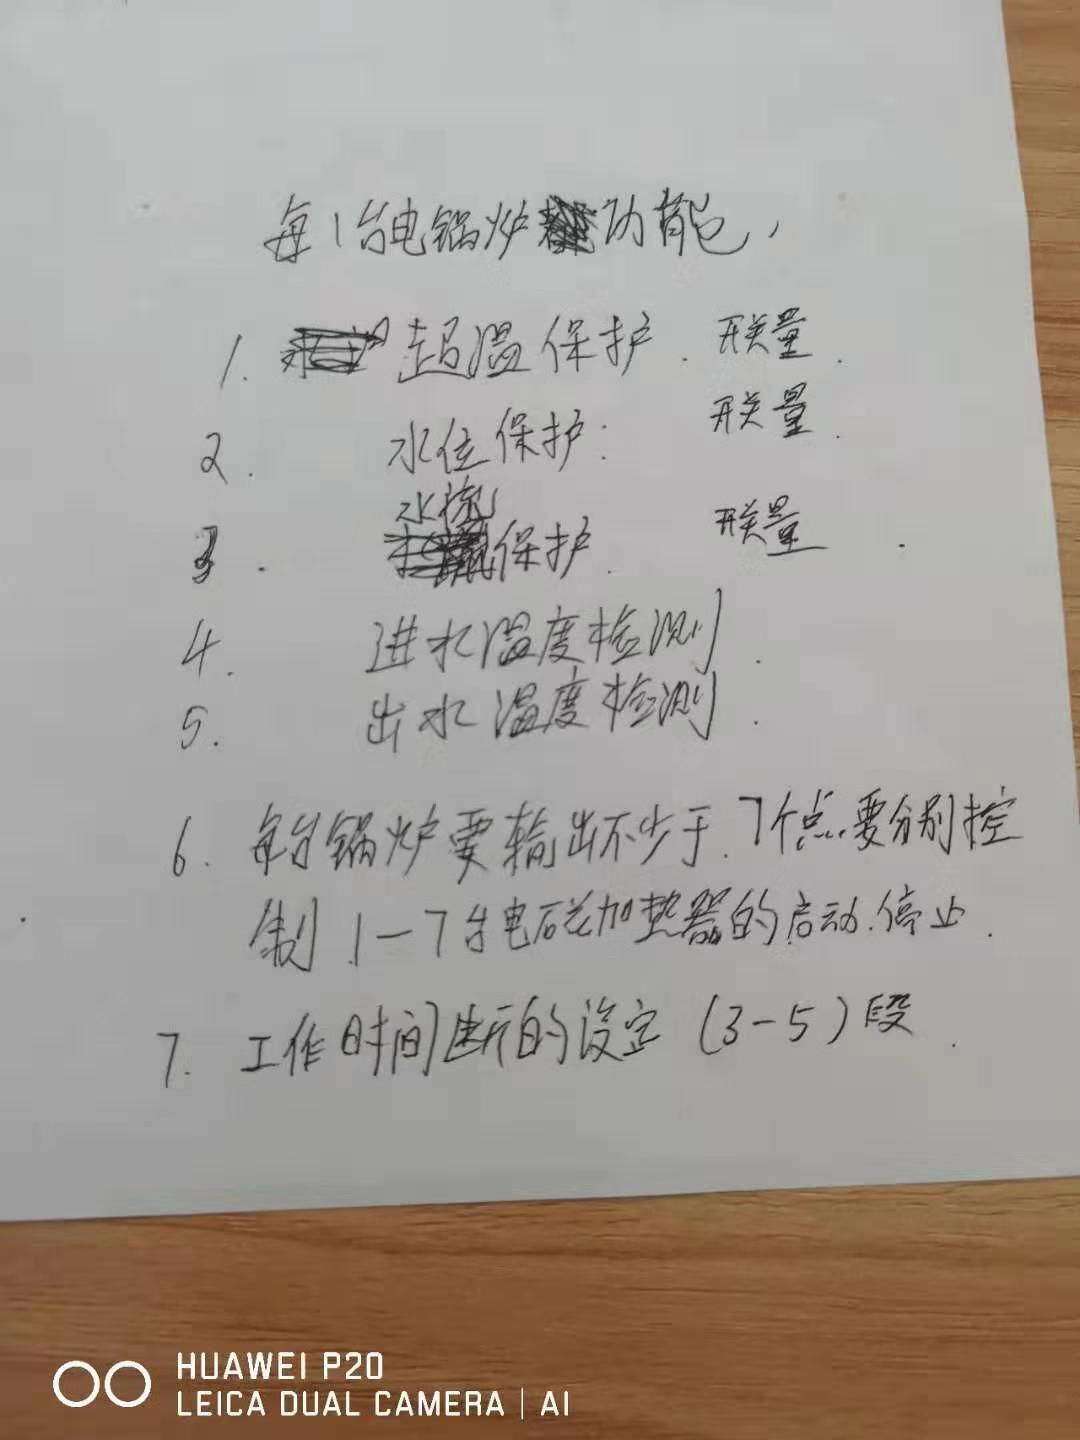 每1台电锅炉功能,
1. 超温保护. 开关量.
2. 水位保护: 开关量.
3. 水流保护. 开关量.
4. 进水温度检测.
5. 出水温度检测.
6. 每台锅炉要输出不少于7个点.要分别控
制1-7台电磁加热器的启动.停止.
7. 工作时间断的设定(3-5)段.
HUAWEI P20
LEICA DUAL CAMERA | AI